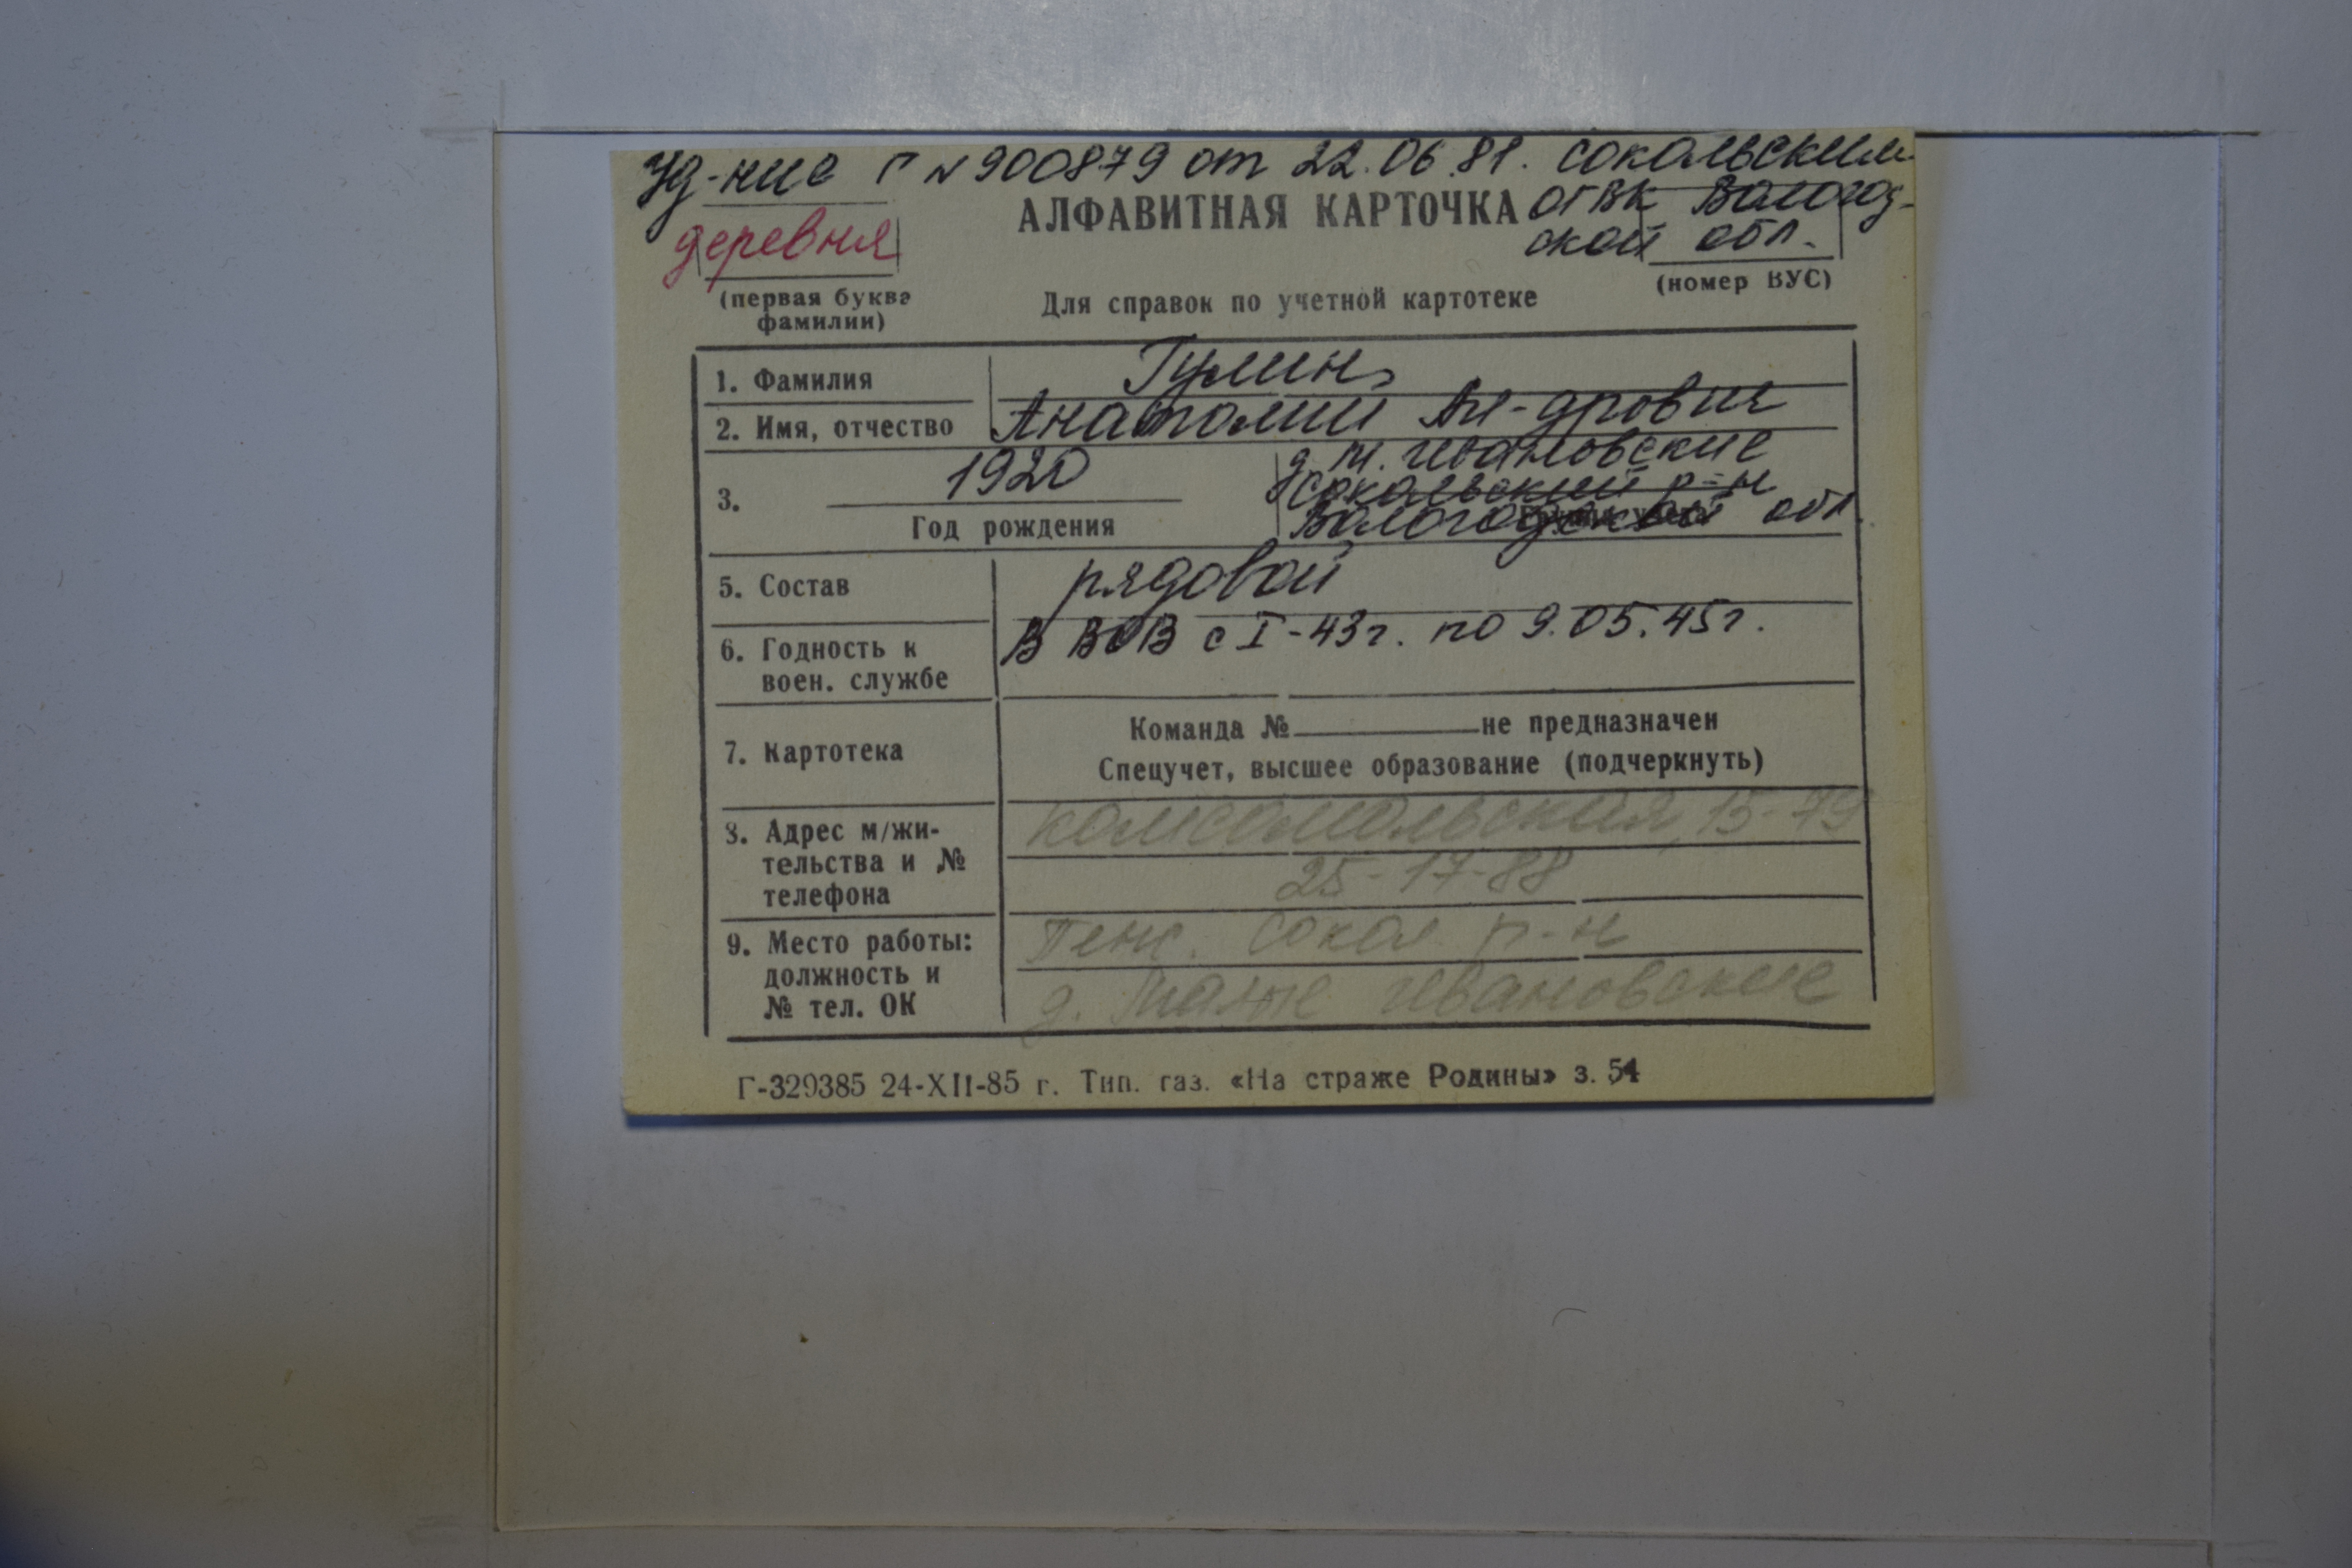 Уд-ние Г N 900879 от 22.06.81. Сокольским
АЛФАВИТНАЯ КАРТОЧКА ОГВК Вологод-
деревня
ской обл.
(первая буква
фамилии)
(номер ВУС)
Для справок по учетной картотеке
1. Фамилия Гулин
2. Имя, отчество Анатолий Ал-дрович
3. 1920
Год рождения
д. М. Ивановские
Сокольский р-н
Вологодской обл.
5. Состав рядовой
6. Годность к
воен. службе
В ВОВ с I-43г. по 9.05.45г.
7. Картотека
Команда № не предназначен
Спецучет, высшее образование (подчеркнуть)
8. Адрес м/жи-
тельства и №
телефона
Комсомольская, 15-79
25-17-88
9. Место работы:
должность и
№ тел. ОК
Пенс. Сокол р-н
д. Малые Ивановские
Г-329385 24-XII-85 г. Тип. газ. «На страже Родины» з. 54